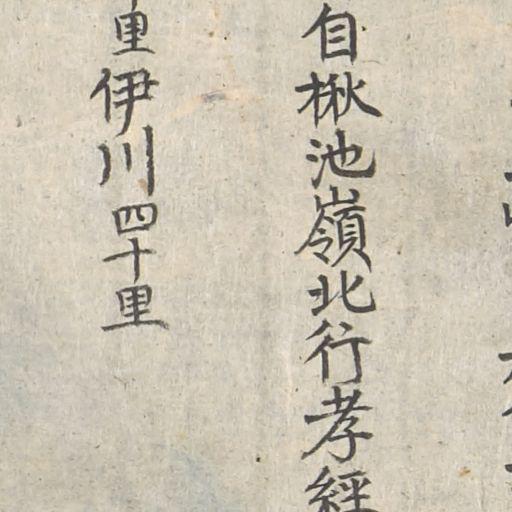 自楸池嶺北行孝經
里伊川四十里